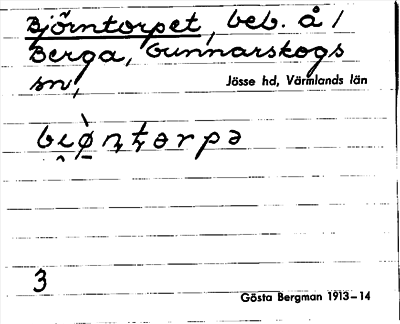 Björntorpet, beb. å 1
Berga, Gunnarskogs
sn,
Jösse hd, Värmlands län
bi̯ø̠̀ɳʈərpə
3
Gösta Bergman 1913–14